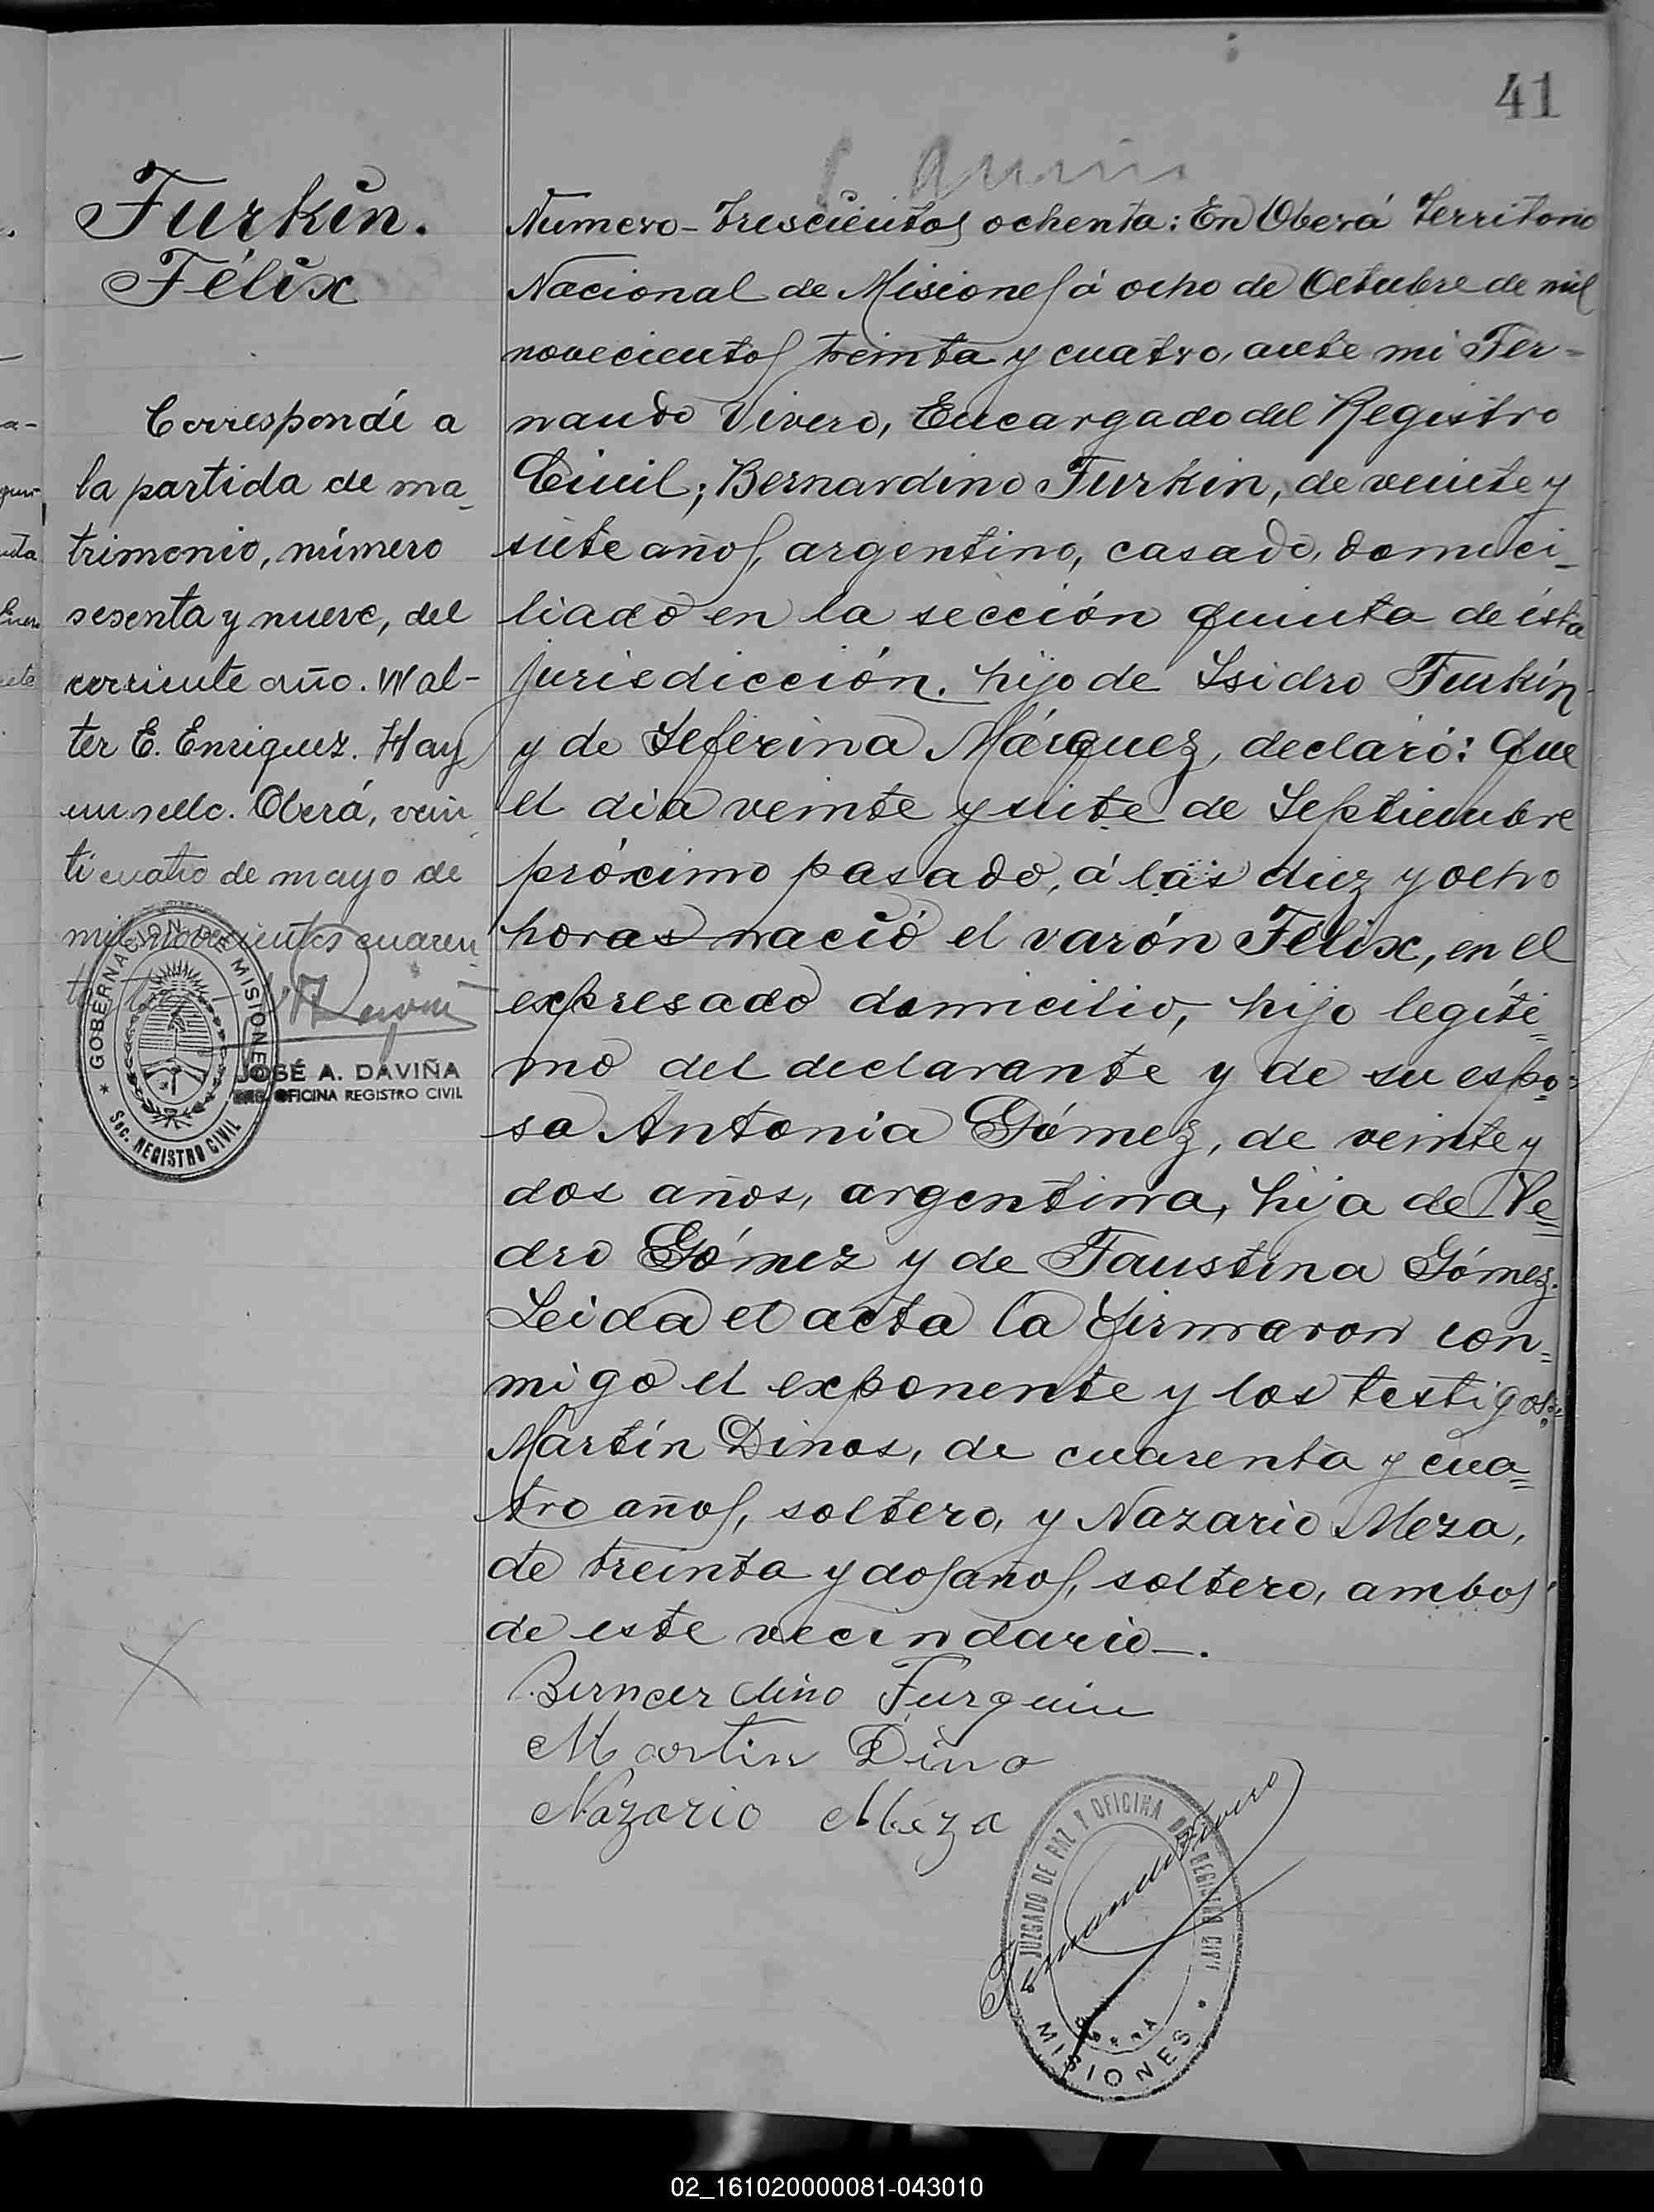 41
Furkin.
Félix
Correspondé a
la partida de ma-
trimonio, número
sesenta y nueve, del
corriente año. Wal-
ter E. Enriquez. Hay
un sello. Oberá, vein
ticuatro de mayo de
mil novecientos cuaren
GOBERNACION DE MISIONES
Sec. REGISTRO CIVIL
JOSÉ A. DAVIÑA
OFICINA REGISTRO CIVIL
Numero-Trescientos ochenta: En Oberá Territorio
Nacional de Misiones á ocho de Octubre de mil
novecientos treinta y cuatro, ante mi Fer-
nando Vivero, Encargado del Registro
Civil; Bernardino Furkin, de veinte y
siete años, argentino, casado, domici-
liado en la sección quinta de ésta
jurisdicción. hijo de Isidro Furkín
y de Seferina Márquez, declaró: Que
el dia veinte y siete de Septiembre
próximo pasado, á las diez y ocho
horas nació el varón Félix, en el
expresado domicilio, hijo legíti=
mo del declarante y de su espo=
sa Antonia Gómez, de veinte y
dos años, argentina, hija de Pe=
dro Gómez y de Faustina Gómez.
Leida el acta la firmaron con=
migo el exponente y los testigos:
Martín Dinos, de cuarenta y cua=
tro años, soltero, y Nazario Meza,
de treinta y dos años, soltero, ambos
de este vecindario-.
Bernardino Furquin
Martin Dino
Nazario Meza
Fernando Vivero
JUZGADO DE PAZ Y OFICINA DEL REGISTRO CIVIL
OBERA
MISIONES
02_161020000081-043010